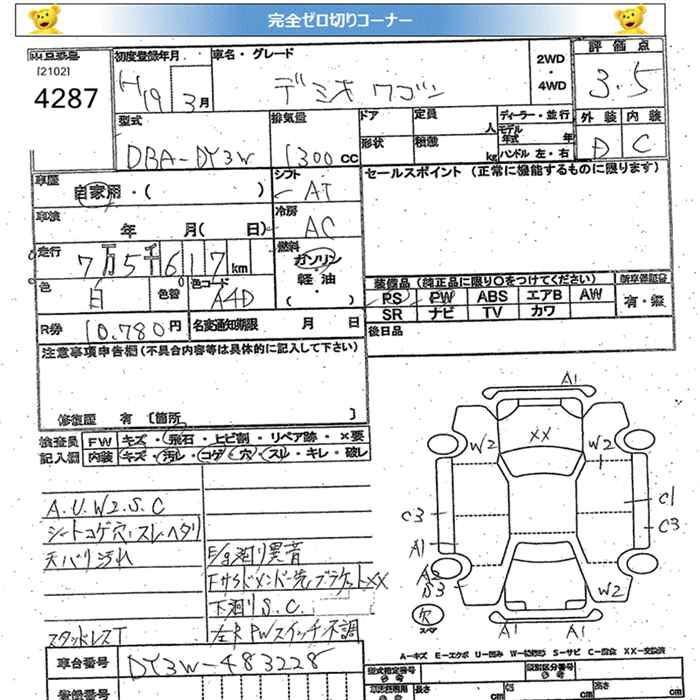 完全ゼロ切りコーナー
[2102]
4287
初度登録年月
H19 3月
車名・グレード
デミオ ワゴン
2WD
・
4WD
評価点
3.5
型式
DBA-DY3W
排気量
1300cc
ドア
定員
人
形状
積載
kg
ディーラー・並行
モデル年式 年
ハンドル 左・右
外装 内装
D C
車歴
自家用・( )
シフト
AT
セールスポイント (正常に機能するものに限ります)
車検
年 月( 日)
冷房
AC
走行
7万5千617km
燃料
ガソリン
軽・油
( )
色
白
色替
色コード
A4D
装備品 (純正品に限り○をつけてください)
PS PW ABS エアB AW
SR ナビ TV カワ
新車保証書
有・無
R券
10,780円
名変通知期限 月 日
後日品
注意事項申告欄(不具合内容等は具体的に記入して下さい)
修復歴 有 [箇所 ]
検査員
記入欄
FW キズ・飛石・ヒビ割・リペア跡・×要
内装 キズ・汚レ・コゲ・穴・スレ・キレ・破レ
A.U.W2.S.C
シートコゲ穴・スレ・ヘタリ
天バリ汚れ
E/g廻り異音
下廻りS.C.
スタッドレスT
左R PWスイッチ不調
A1
W2
XX
W2
C3
C1
C3
A1
A2
S3
W2
欠
スペア
A1
A-キズ E-エクボ U-凹み W-補修跡 S-サビ C-腐食 XX-交換済
車台番号
DY3W-483228
登録番号
型式指定番号
類別区分番号
長さ cm
cm
高さ cm